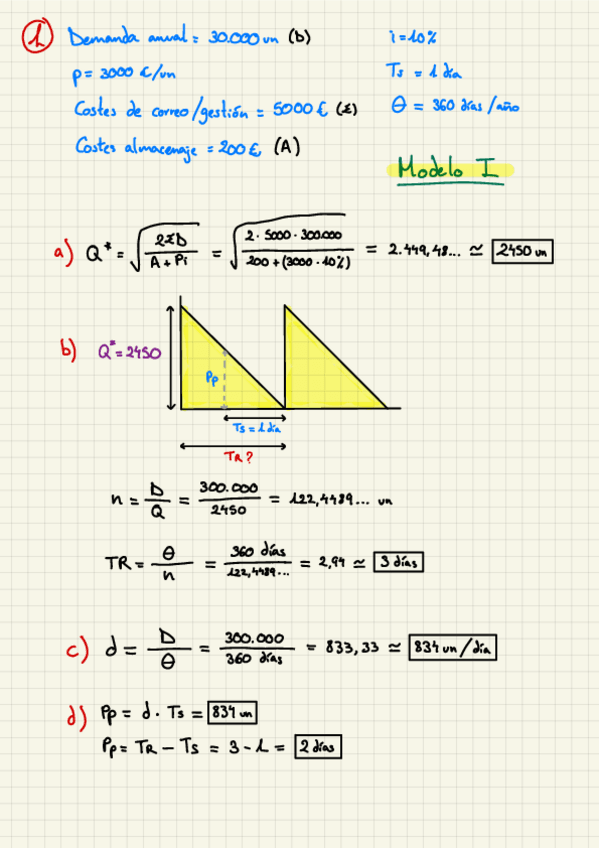 1 Demanda anual = 30.000 un (D) i = 10%
p = 3000 €/un Ts = 1 día
Costes de correo/gestión = 5000 € (Σ) θ = 360 días/año
Costes almacenaje = 200 € (A)
Modelo I
a) Q* = √(2ΣD / A + Pi) = √(2 · 5000 · 300.000 / 200 + (3000 · 10%)) = 2.449,48... ≃ 2450 un
b) Q* = 2450
Pp
Ts = 1 día
TR?
n = D/Q = 300.000/2450 = 122,4489... un
TR = θ/n = 360 días/122,4489... = 2,94 ≃ 3 días
c) d = D/θ = 300.000/360 días = 833,33 ≃ 834 un/día
d) Pp = d · Ts = 834 un
Pp = TR - Ts = 3 - 1 = 2 días